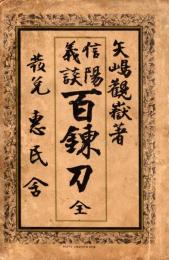 矢嶋觀嶽著
信陽
義談
百錬刀 全
發兌 惠民舍